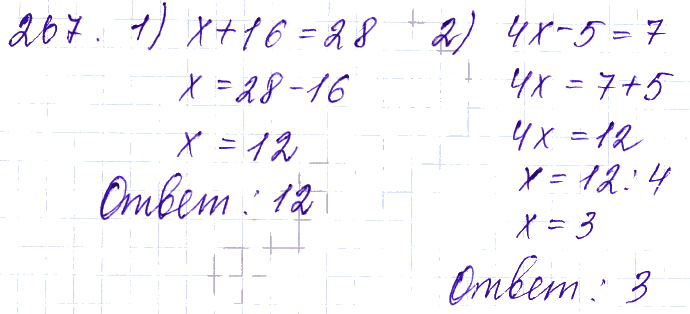 267. 1) x+16=28
x=28-16
x=12
Ответ: 12
2) 4x-5=7
4x=7+5
4x=12
x=12:4
x=3
Ответ: 3